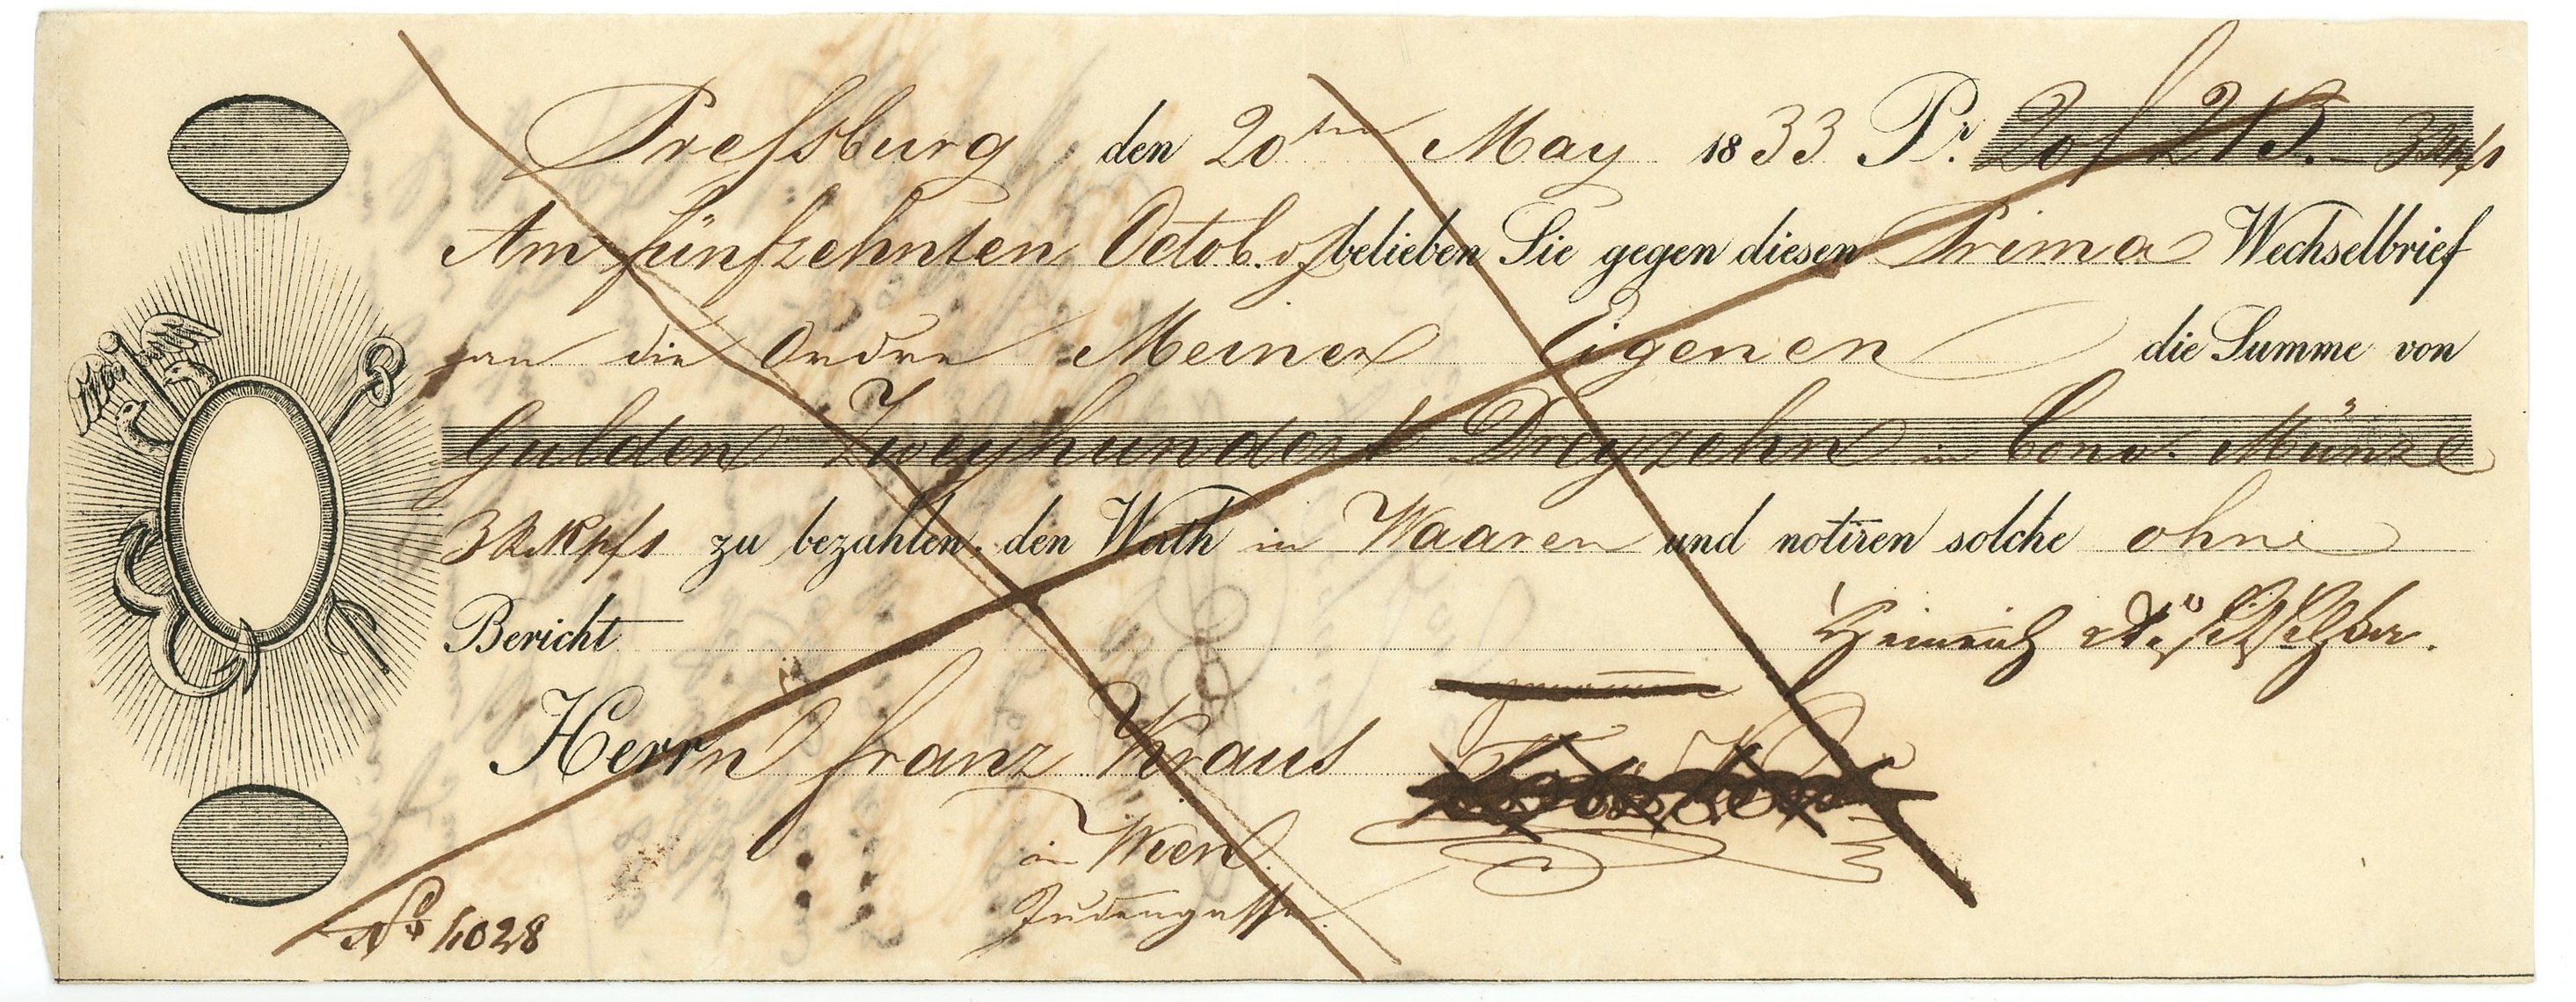 Pressburg den 20ten May 1833 Pr. f 213.
Am fünfzehnten Octob. belieben Sie gegen diesen Prima Wechselbrief
an die Ordre Meiner Eigenen die Summe von
Gulden Zweyhundert Dreyzehn in Conv. Münze
zu bezahlen, den Werth in Waaren und notiren solche ohne
Bericht
Heinrich
Herrn Franz Kraus
in Wien.
Judengasse
No 4028